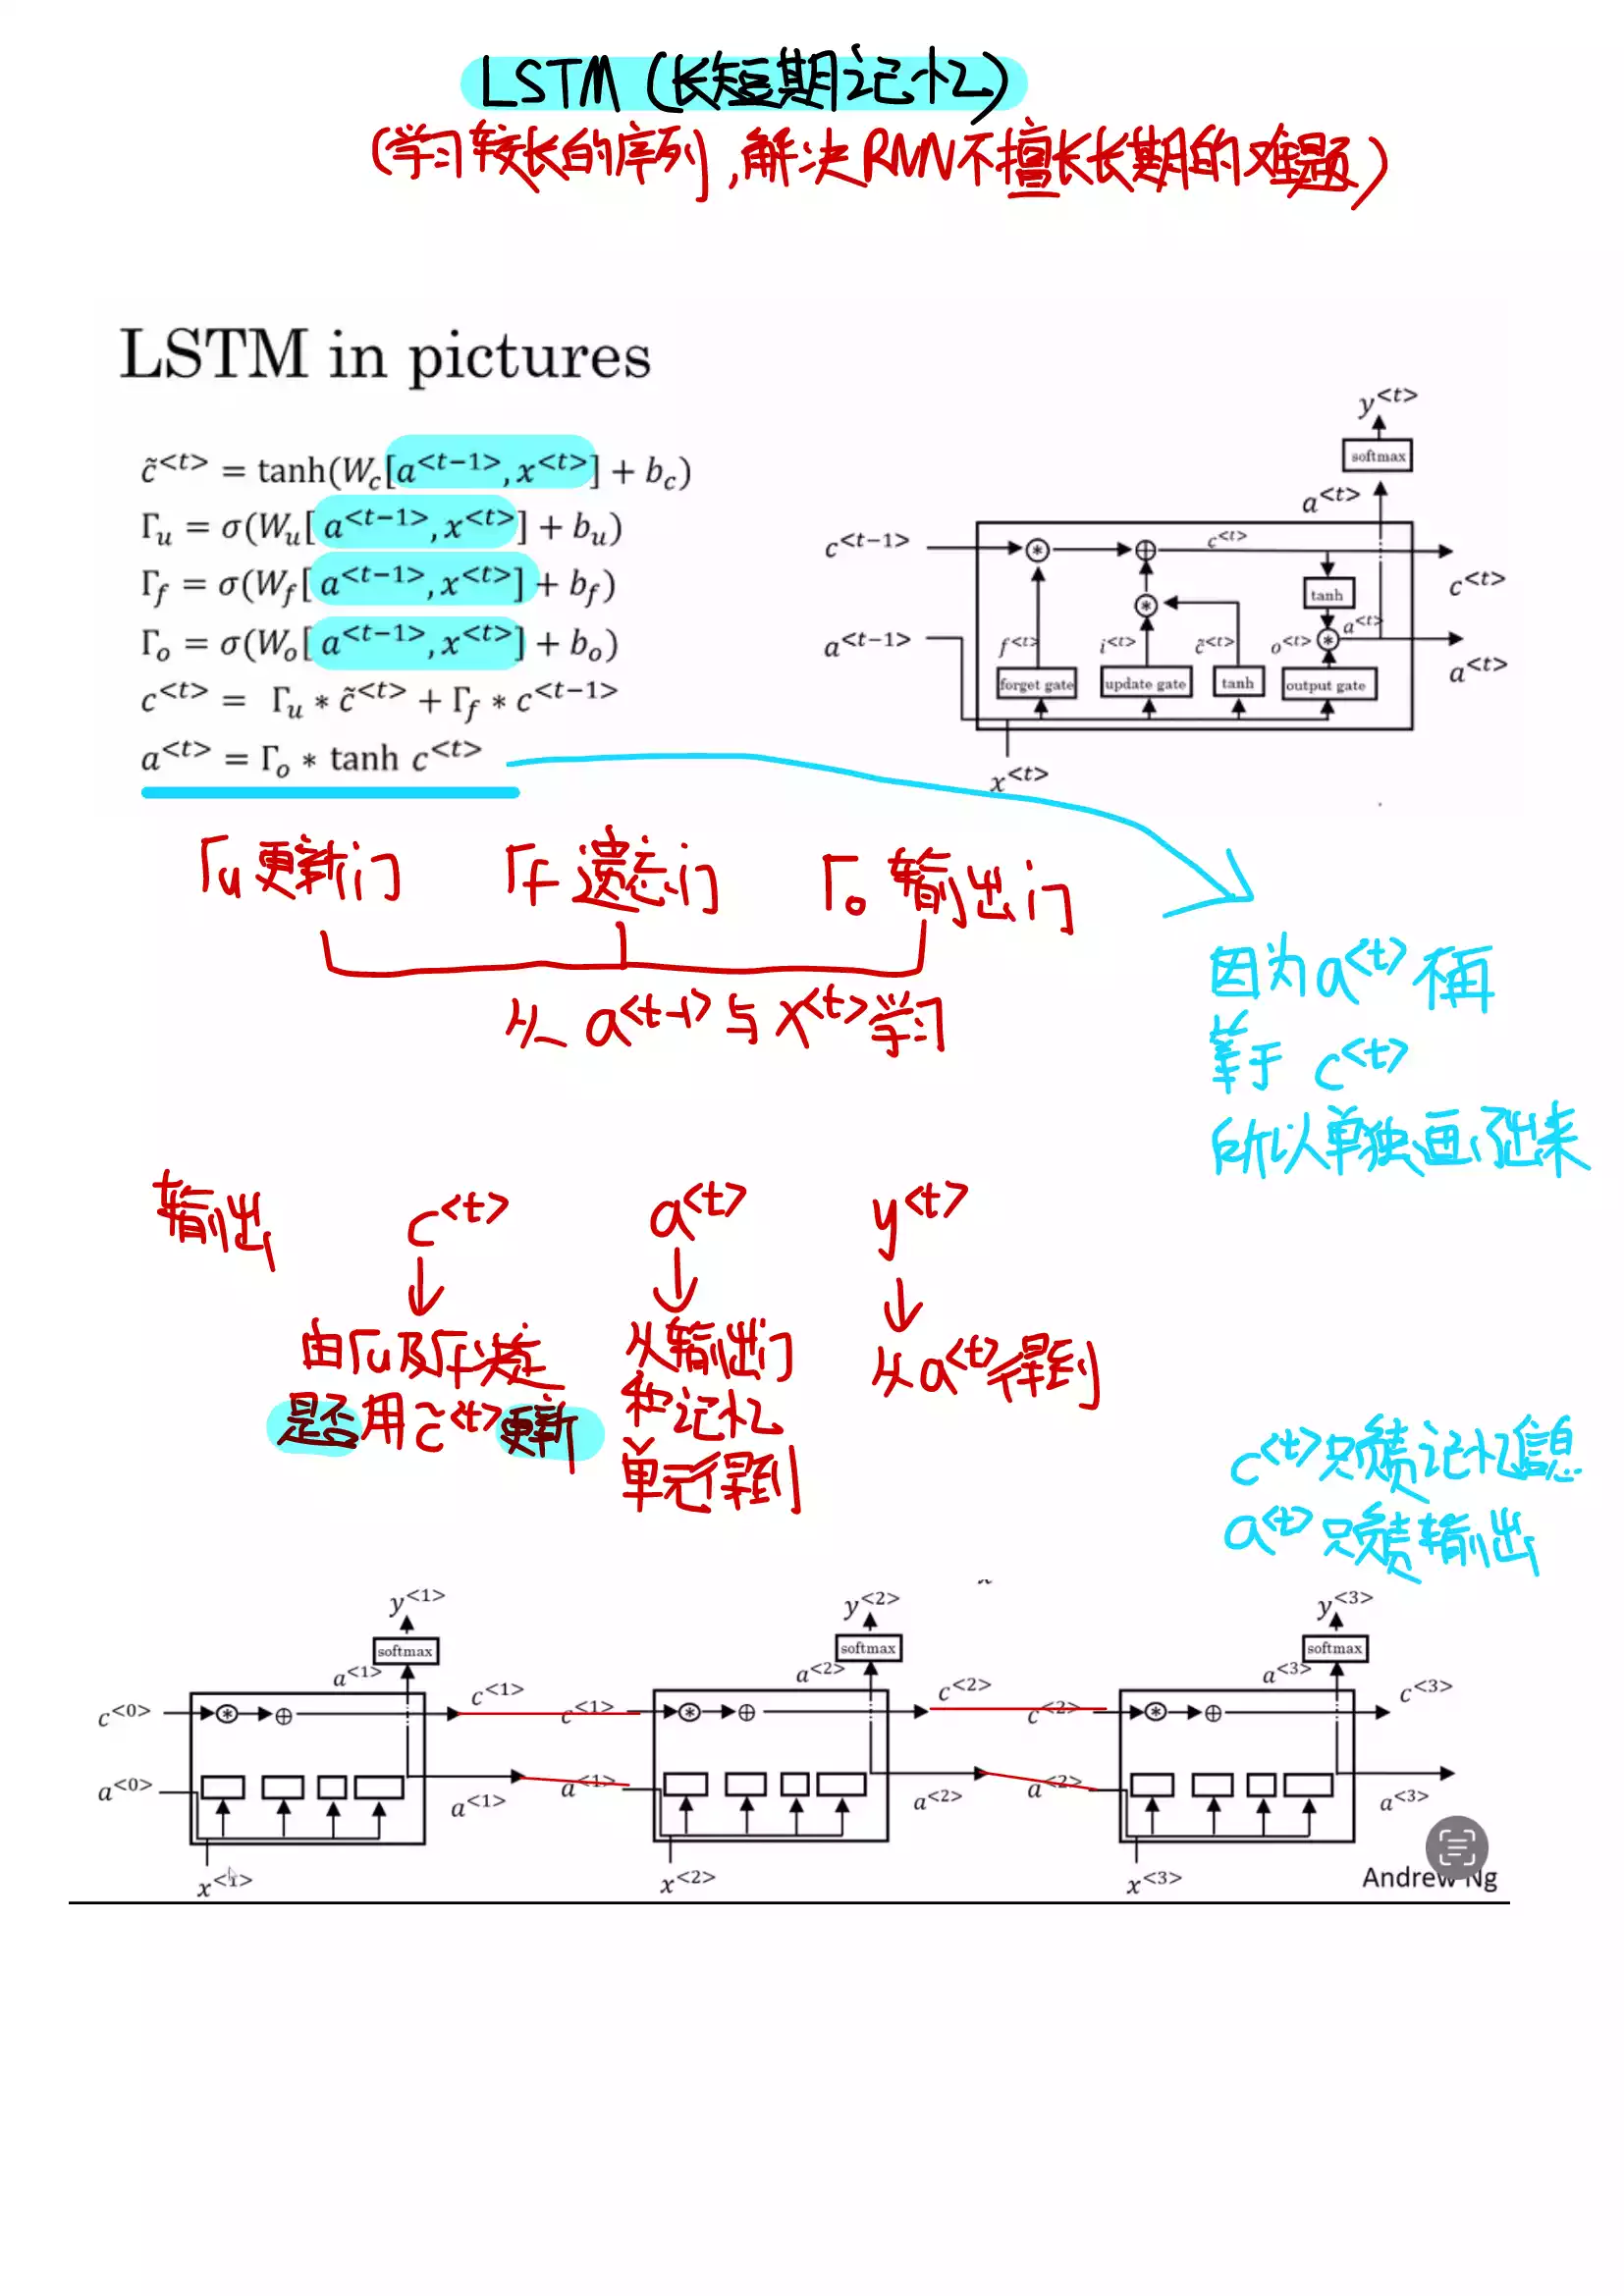 LSTM (长短期记忆)
(学习较长的序列,解决RNN不擅长长期的难题)
LSTM in pictures
c̃^{<t>} = tanh(W_c[a^{<t−1>}, x^{<t>}] + b_c)
Γ_u = σ(W_u[a^{<t−1>}, x^{<t>}] + b_u)
Γ_f = σ(W_f[a^{<t−1>}, x^{<t>}] + b_f)
Γ_o = σ(W_o[a^{<t−1>}, x^{<t>}] + b_o)
c^{<t>} = Γ_u * c̃^{<t>} + Γ_f * c^{<t−1>}
a^{<t>} = Γ_o * tanh c^{<t>}
y^{<t>}
softmax
a^{<t>}
c^{<t−1>} c^{<t>} c^{<t>}
tanh
a^{<t−1>} f^{<t>} i^{<t>} c̃^{<t>} o^{<t>} a^{<t>} a^{<t>}
forget gate update gate tanh output gate
x^{<t>}
Γu 更新门 Γf 遗忘门 Γo 输出门
从 a<t-1> 与 x<t> 学习
因为a<t>不再
等于 c<t>
所以单独画了出来
输出 c<t> a<t> y<t>
由Γu及Γf决定
是否用c̃<t>更新
从输出门
和记忆
单元得到
从a<t>得到
c<t>只负责记忆信息
a<t>只负责输出
y^{<1>} y^{<2>} y^{<3>}
softmax softmax softmax
a^{<1>} a^{<2>} a^{<3>}
c^{<0>} c^{<1>} c^{<1>} c^{<2>} c^{<2>} c^{<3>}
a^{<0>} a^{<1>} a^{<1>} a^{<2>} a^{<2>} a^{<3>}
x^{<1>} x^{<2>} x^{<3>}
Andrew Ng